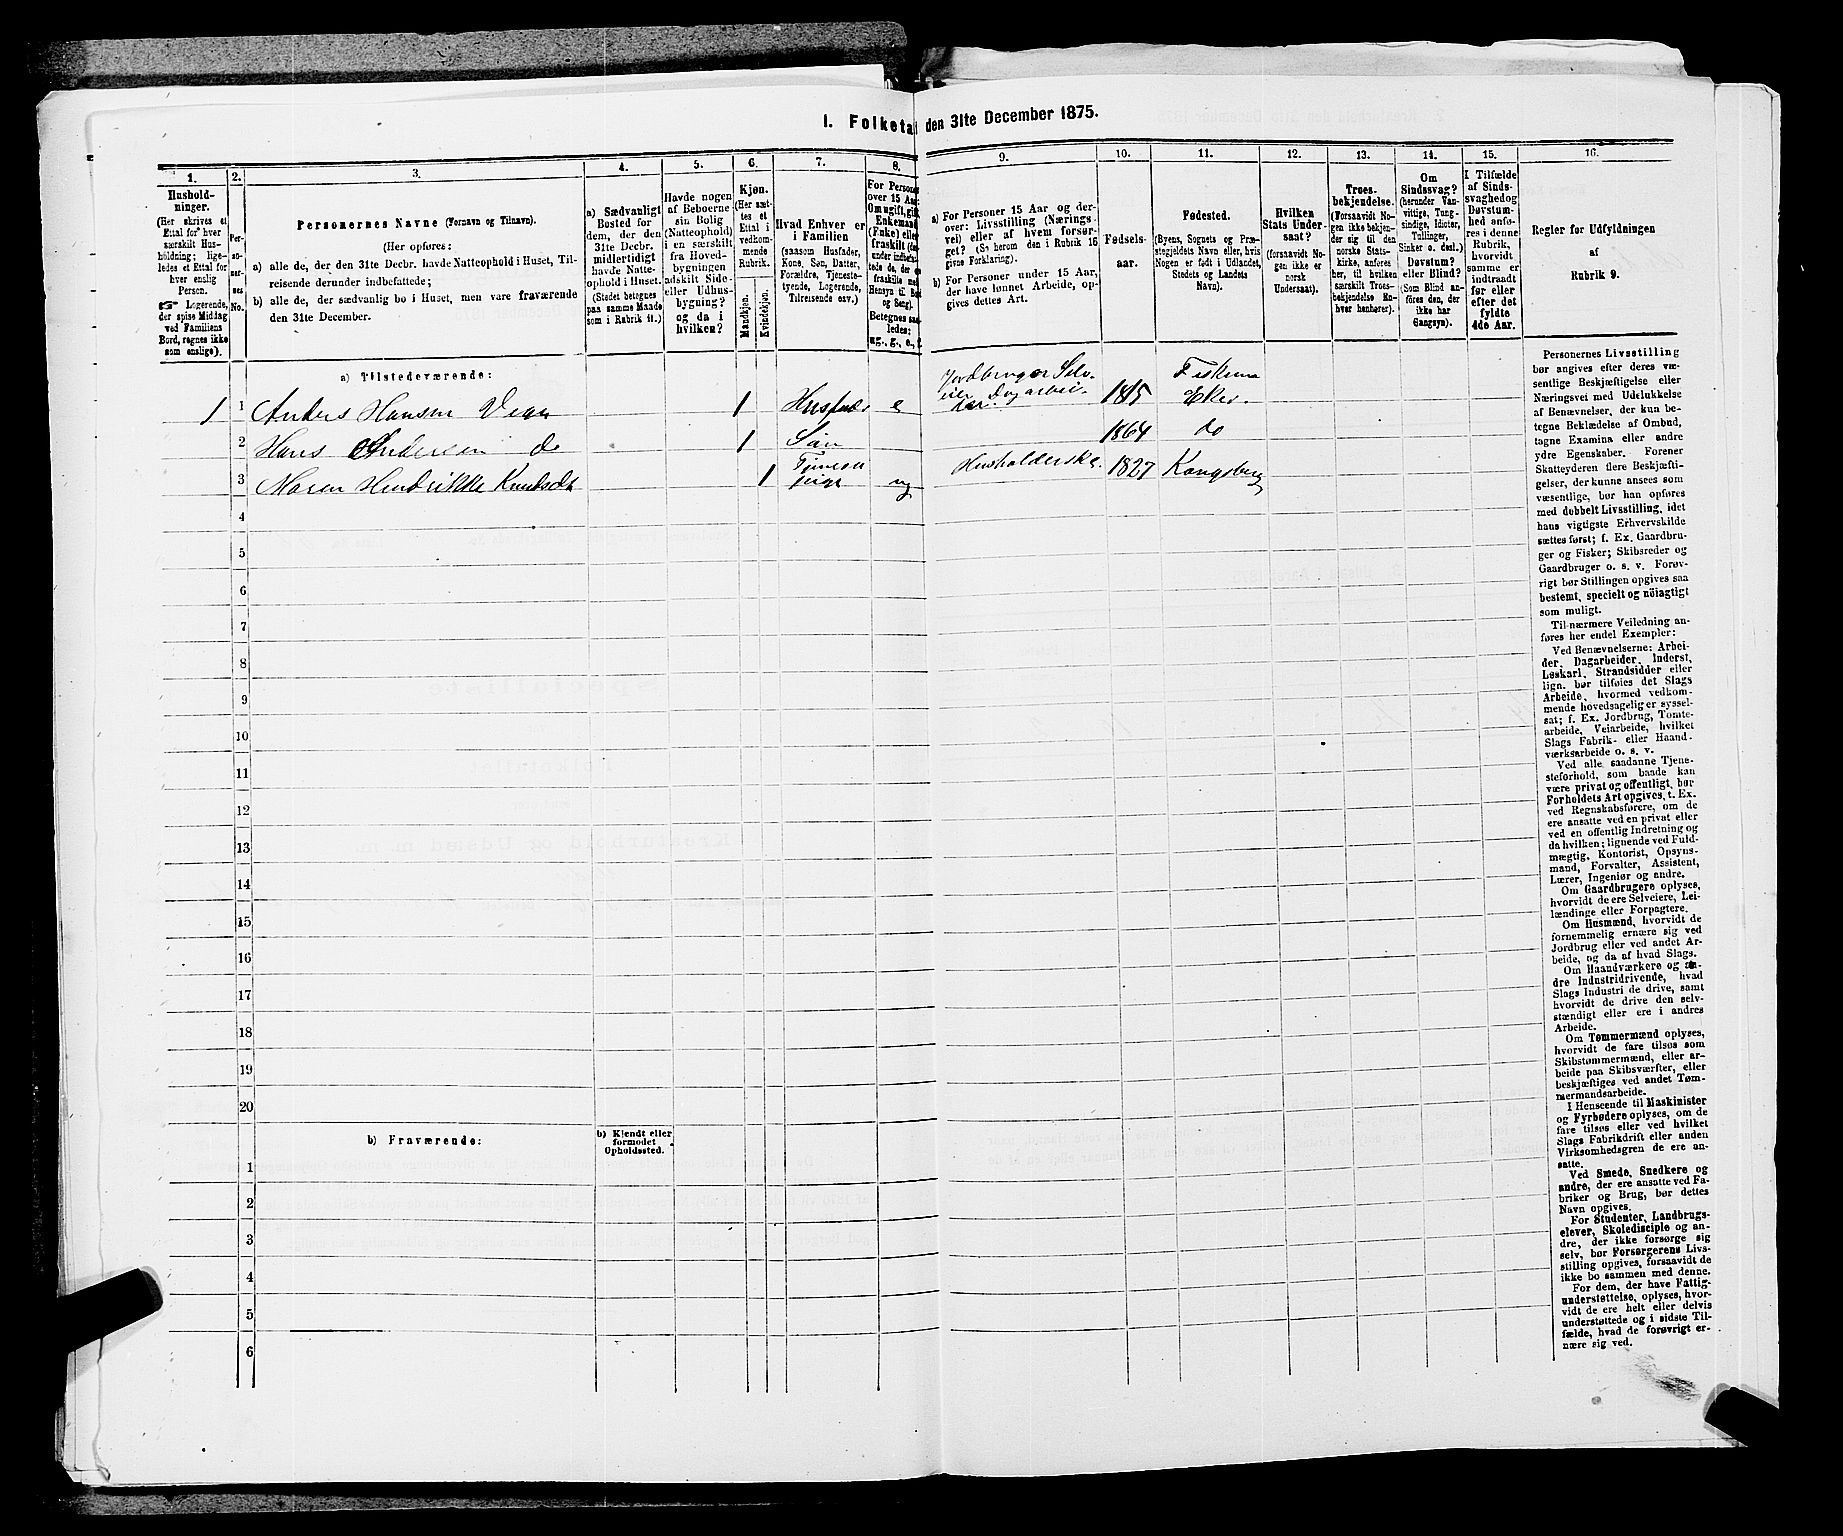 1. Folketal den 31te December 1875.
1.
2.
3.
4.
5.
6.
7.
8.
9.
10.
11.
12.
13.
14.
15.
16.
Hushold-
ninger.
(Her skrives et
Ettal for hver
særskilt Hus-
holdning; lige-
ledes et Ettal for
hver enslig
Person.
☞ Logerende,
der spise Middag
ved Familiens
Bord, regnes ikke
som enslige).
Per-
soner-
nes
No.
Personernes Navne (Fornavn og Tilnavn).
(Her opføres:
a) alle de, der den 31te Decbr. havde Natteophold i Huset, Til-
reisende derunder indbefattede;
b) alle de, der sædvanlig bo i Huset, men vare fraværende
den 31te December.
a) Sædvanligt
Bosted for
dem, der den
31te Decbr.
midlertidigt
havde Natte-
ophold i Huset.
(Stedet betegnes
paa samme Maade
som i Rubrik 11.)
Havde nogen
af Beboerne
sin Bolig
(Natteophold)
i en særskilt
fra Hoved-
bygningen
adskilt Side-
eller Udhus-
bygning?
og da i
hvilken?
Kjøn.
(Her sæt-
tes et
Ettal i
vedkom-
mende
Rubrik.
Mandkjøn.
Kvindekjøn.
Hvad Enhver er
i Familien
(saasom Husfader,
Kone, Søn, Datter,
Forældre, Tjeneste-
tyende, Logerende,
Tilreisende osv.)
For Personer
over 15 Aar:
Om ugift, gift,
Enkemand
(Enke) eller
fraskilt
Betegnes saa-
ledes:
ug., g., e., f.
a) For Personer 15 Aar og der-
over: Livsstilling (Nærings-
vei) eller af hvem forsør-
get? (Se herom den i Rubrik 16
givne Forklaring).
b) For Personer under 15 Aar,
der have lønnet Arbeide, op-
gives dettes Art.
Fødsels-
aar.
Fødested.
(Byens, Sognets og Præ-
stegjeldets Navn eller, hvis
Nogen er født i Udlandet,
Stedets og Landets
Navn).
Hvilken
Stats Under-
saat?
(forsaavidt No-
gen ikke er
norsk
Undersaat).
Troes-
bekjendelse.
(Forsaavidt No-
gen ikke bekjen-
der sig til den
norske Stats-
kirke, anføres
her, til hvilken
særskilt Troes-
bekjendelse En-
hver henhører).
Om
Sindssvag?
(herunder Van-
vittige, Tung-
sindige, Idioter,
Tullinger,
Sinker o. desl.)
Døvstum?
eller Blind?
(Som Blind an-
føres den, der
ikke har
Gangsyn).
I Tilfælde
af Sinds-
svaghed og
Døvstum-
hed anfø-
res i denne
Rubrik,
hvorvidt
samme er
indtraadt
før eller
efter det
fyldte
4de Aar.
Regler for Udfyldningen
af
Rubrik 9.
a) Tilstedeværende:
1 1 Anders Hansen 1 Husfader e Jordbruger Selv-
eier Dagarbei-
der. 1815 Fiskum
Eker.
2 Hans Andersen do 1 Søn 1864 do
3 Maren Hendrikke Knudsdt 1 ug Husholderske. 1827 Kongsberg
4
5
6
7
8
9
10
11
12
13
14
15
16
17
18
19
20
b) Fraværende:
b) Kjendt eller
formodet
Opholdssted.
1
2
3
4
5
6
Personernes Livsstilling
bør angives efter deres væ-
sentlige Beskjæftigelse eller
Næringsvei med Udelukkelse
af Benævnelser, der kun be-
tegne Beklædelse af Ombud,
tagne Examina eller andre
ydre Egenskaber. Forener
Skatteyderen flere Beskjæfti-
gelser, der kunne ansees som
væsentlige, bør han opføres
med dobbelt Livsstilling, idet
hans vigtigste Erhvervskilde
sættes først; f. Ex. Gaardbru-
ger og Fisker; Skibsreder og
Gaardbruger o. s. v. Forøv-
rigt bør Stillingen opgives saa
bestemt, specielt og nöiagtigt
som muligt.
Til nærmere Veiledning an-
føres her endel Exempler:
Ved Benævnelserne: Arbei-
der, Dagarbeider, Inderst,
Løskarl, Strandsidder eller
lign. bør tilføies det Slags
Arbeide, hvormed vedkom-
mende hovedsagelig er syssel-
sat; f. Ex. Jordbrug, Tomte-
arbeide, Veiarbeide, hvilket
Slags Fabrik- eller Haand-
værksarbeide o. s. v.
Ved alle saadanne Tjene-
steforhold, som baade kan
være privat og offentligt, bør
Forholdets Art opgives, t. Ex.
ved Regnskabsførere, om de
ere ansatte ved en privat eller
ved en offentlig Indretning og
da hvilken; lignende ved Fuld-
mægtig, Kontorist, Opsyns-
mand, Forvalter, Assistent,
Lærer, Ingeniør og andre.
Om Gaardbrugere oplyses,
hvorvidt de ere Selveiere, Lei-
lændinge eller Forpagtere.
Om Husmænd, hvorvidt de
fornemmelig ernære sig ved
Jordbrug eller ved andet Ar-
beide, og da af hvad Slags.
Om Haandværkere og an-
dre Industridrivende, hvad
Slags Industri de drive, samt
hvorvidt de drive den selv-
stændigt eller ere i andres
Arbeide.
Om Tømmermænd oplyses,
hvorvidt de fare tilsøs som
Skibstømmermænd, eller ar-
beide paa Skibsværfter, eller
beskjæftiges ved andet Tøm-
mermandsarbeide.
I Henseende til Maskinister
og Fyrbødere oplyses, om de
fare tilsøs eller ved hvilket
Slags Fabrikdrift eller anden
Virksomhedsgren de ere an-
satte.
Ved Smede, Snedkere og
andre, der ere ansatte ved Fa-
briker og Brug, bør dettes
Navn opgives.
For Studenter, Landbrugs-
elever, Skoledisciple og an-
dre, der ikke forsørge sig
selv, bør Forsørgerens Livs-
stilling opgives, forsaavidt de
ikke bo sammen med denne.
For dem, der have Fattig-
understøttelse, oplyses, hvor-
vidt de ere helt eller delvis
understøttede og i sidste Til-
fælde, hvad de forøvrigt er-
nære sig ved.